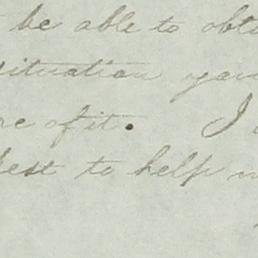 be able to obt
situation your
re of it. I
best to help m